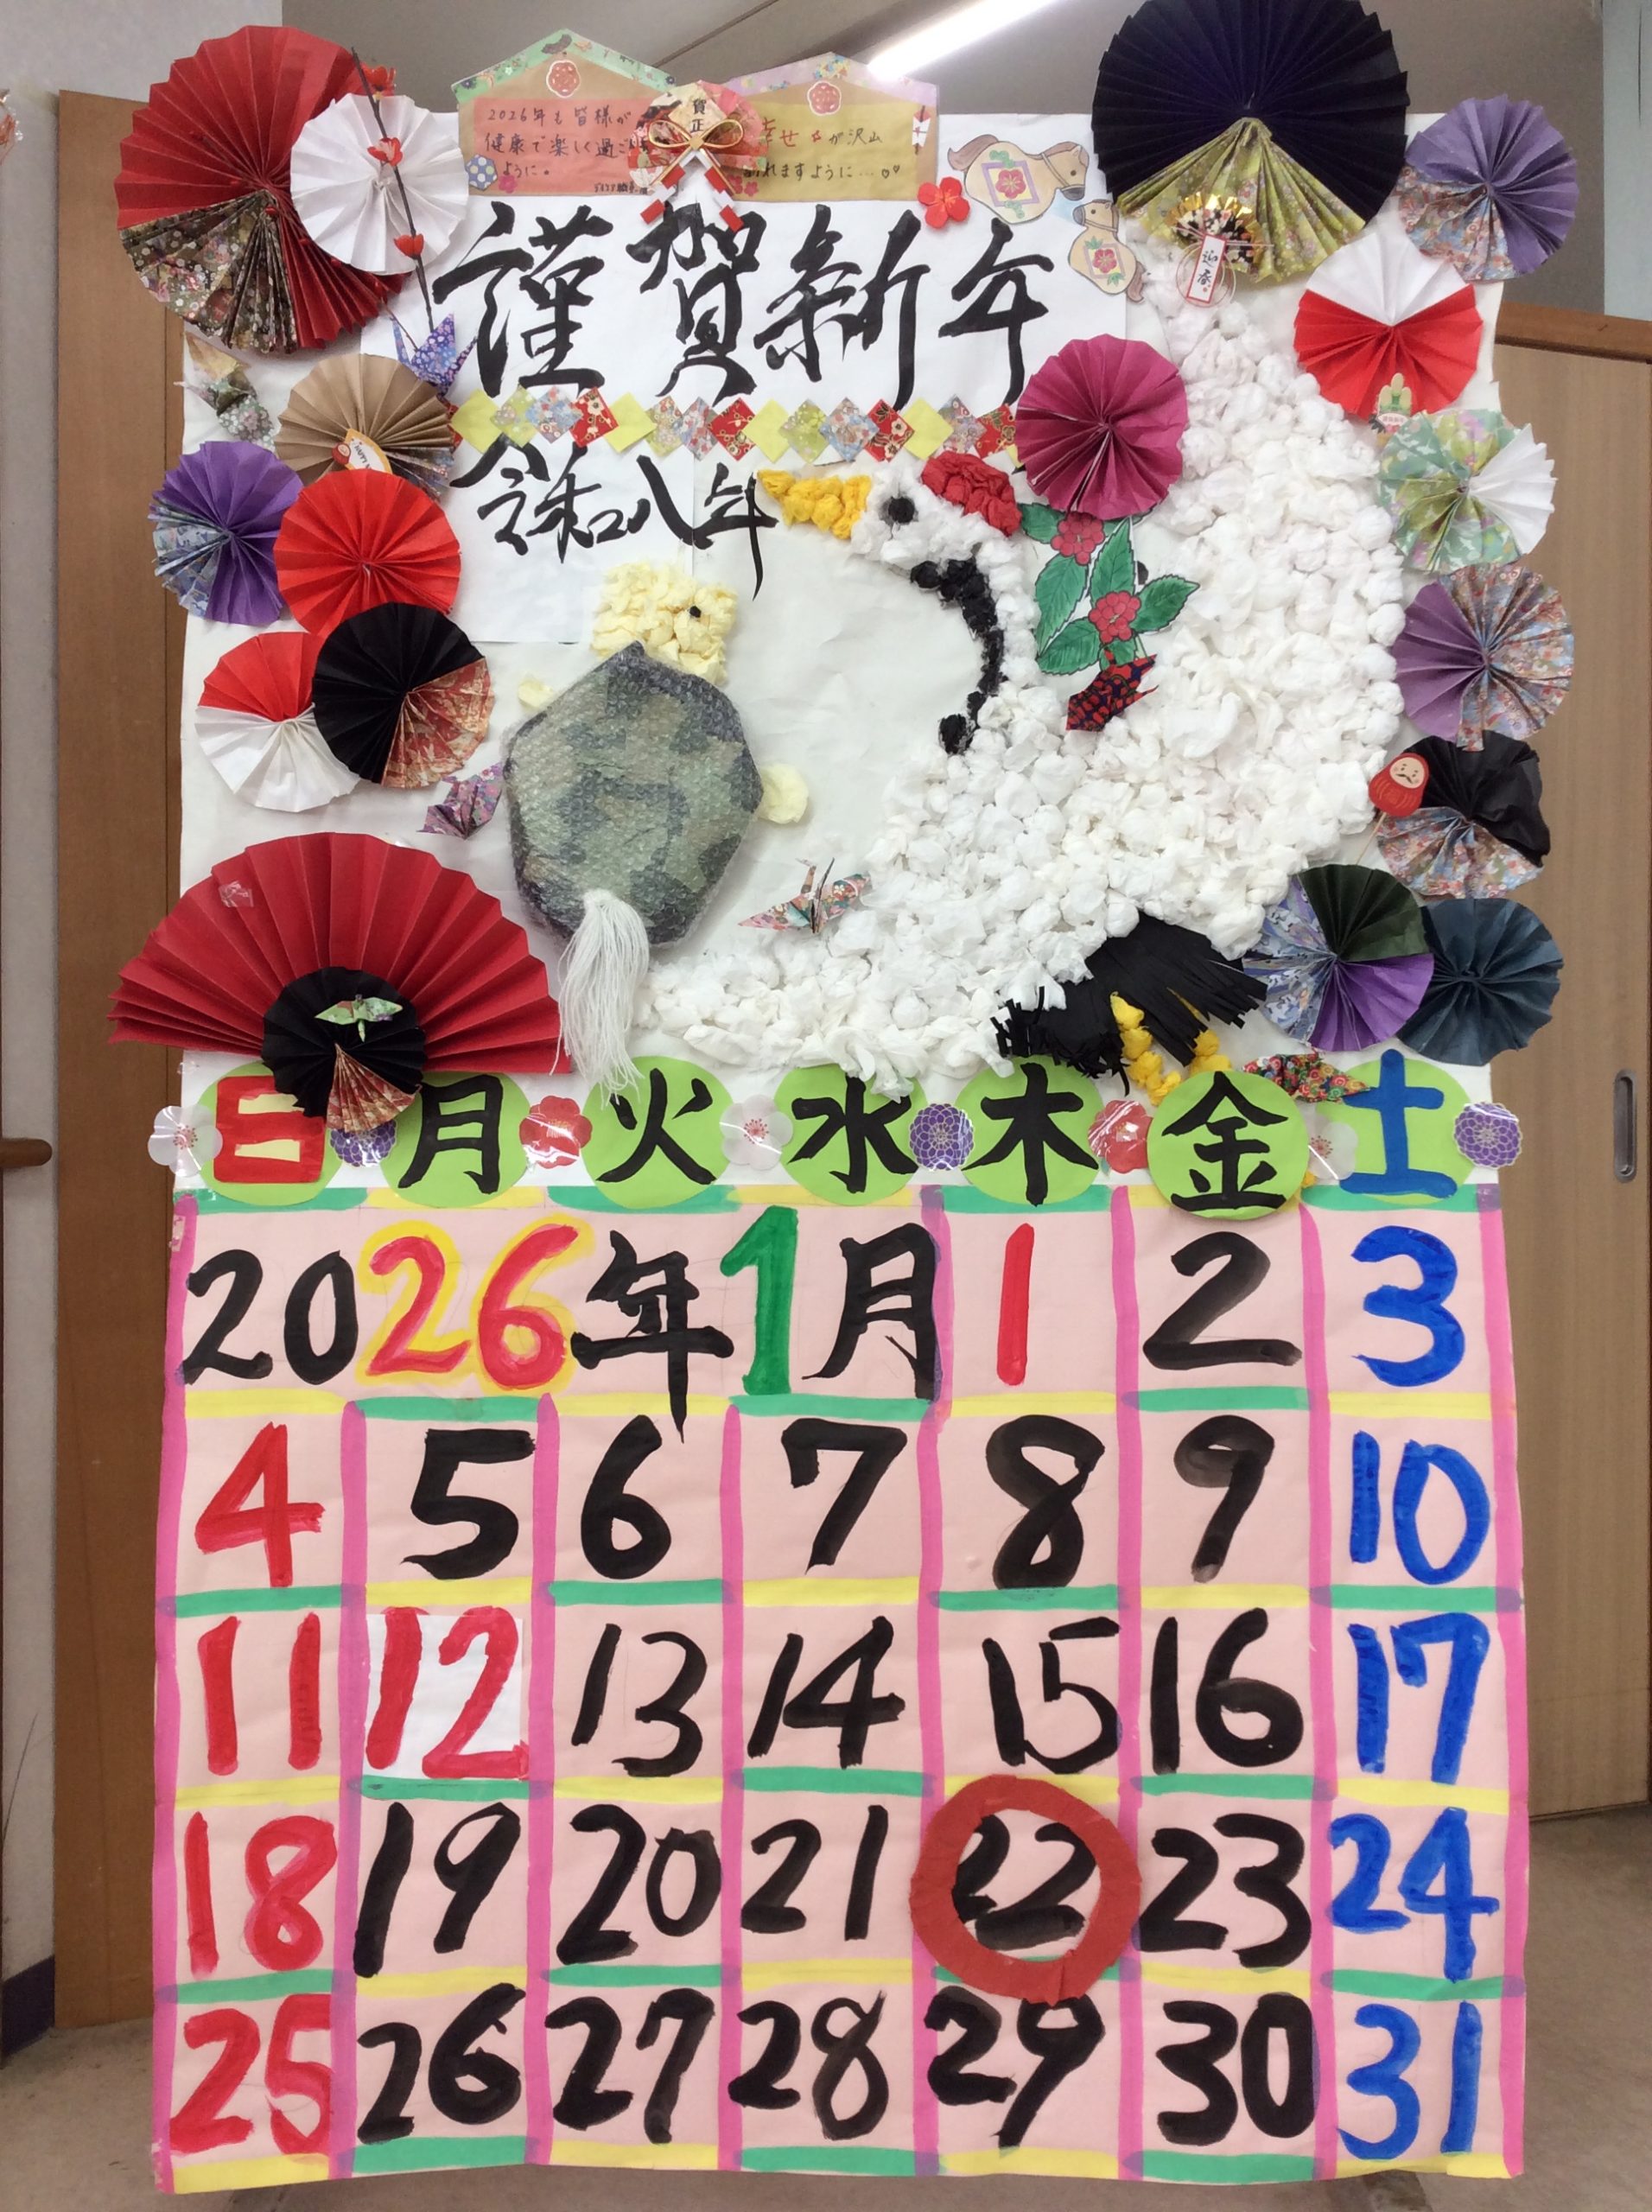 2026年も皆様が
健康で楽しく過ごせ
ように。
賀正
幸せが沢山
訪れますように…
迎春
謹賀新年
令和八年
日 月 火 水 木 金 土
2026年1月 1 2 3
4 5 6 7 8 9 10
11 12 13 14 15 16 17
18 19 20 21 22 23 24
25 26 27 28 29 30 31